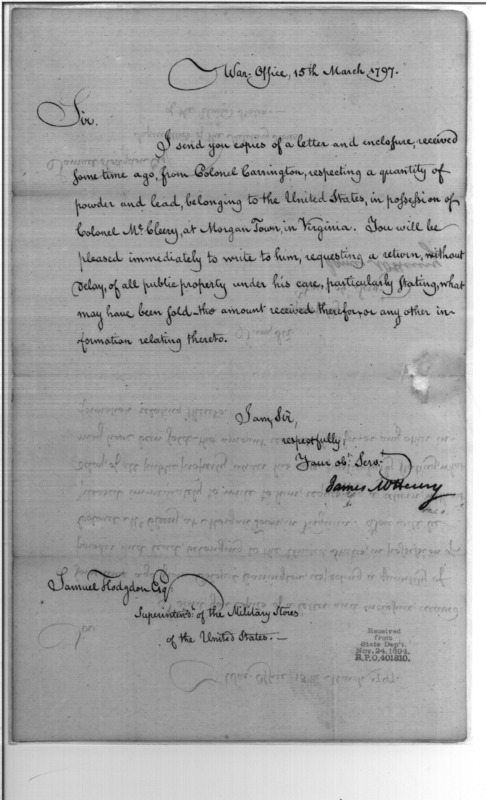 War-Office, 15th March, 1797.
Sir.
I send you copies of a letter and enclosure, received
some time ago, from Colonel Carrington, respecting a quantity of
powder and lead, belonging to the United States, in possession of
Colonel Mc. Cleery, at Morgan Town, in Virginia. You will be
pleased immediately to write to him, requesting a return, without
delay, of all public property under his care, particularly stating, what
may have been sold the amount received therefor, or any other in-
formation relating thereto.
I am, Sir,
respectfully
Your obt. Servt.
James McHenry
Samuel Hodgdon Esqr.
Superintendt. of the Military Stores
of the United States.—
Received
from
State Dep't.
R.P.O. 401810.